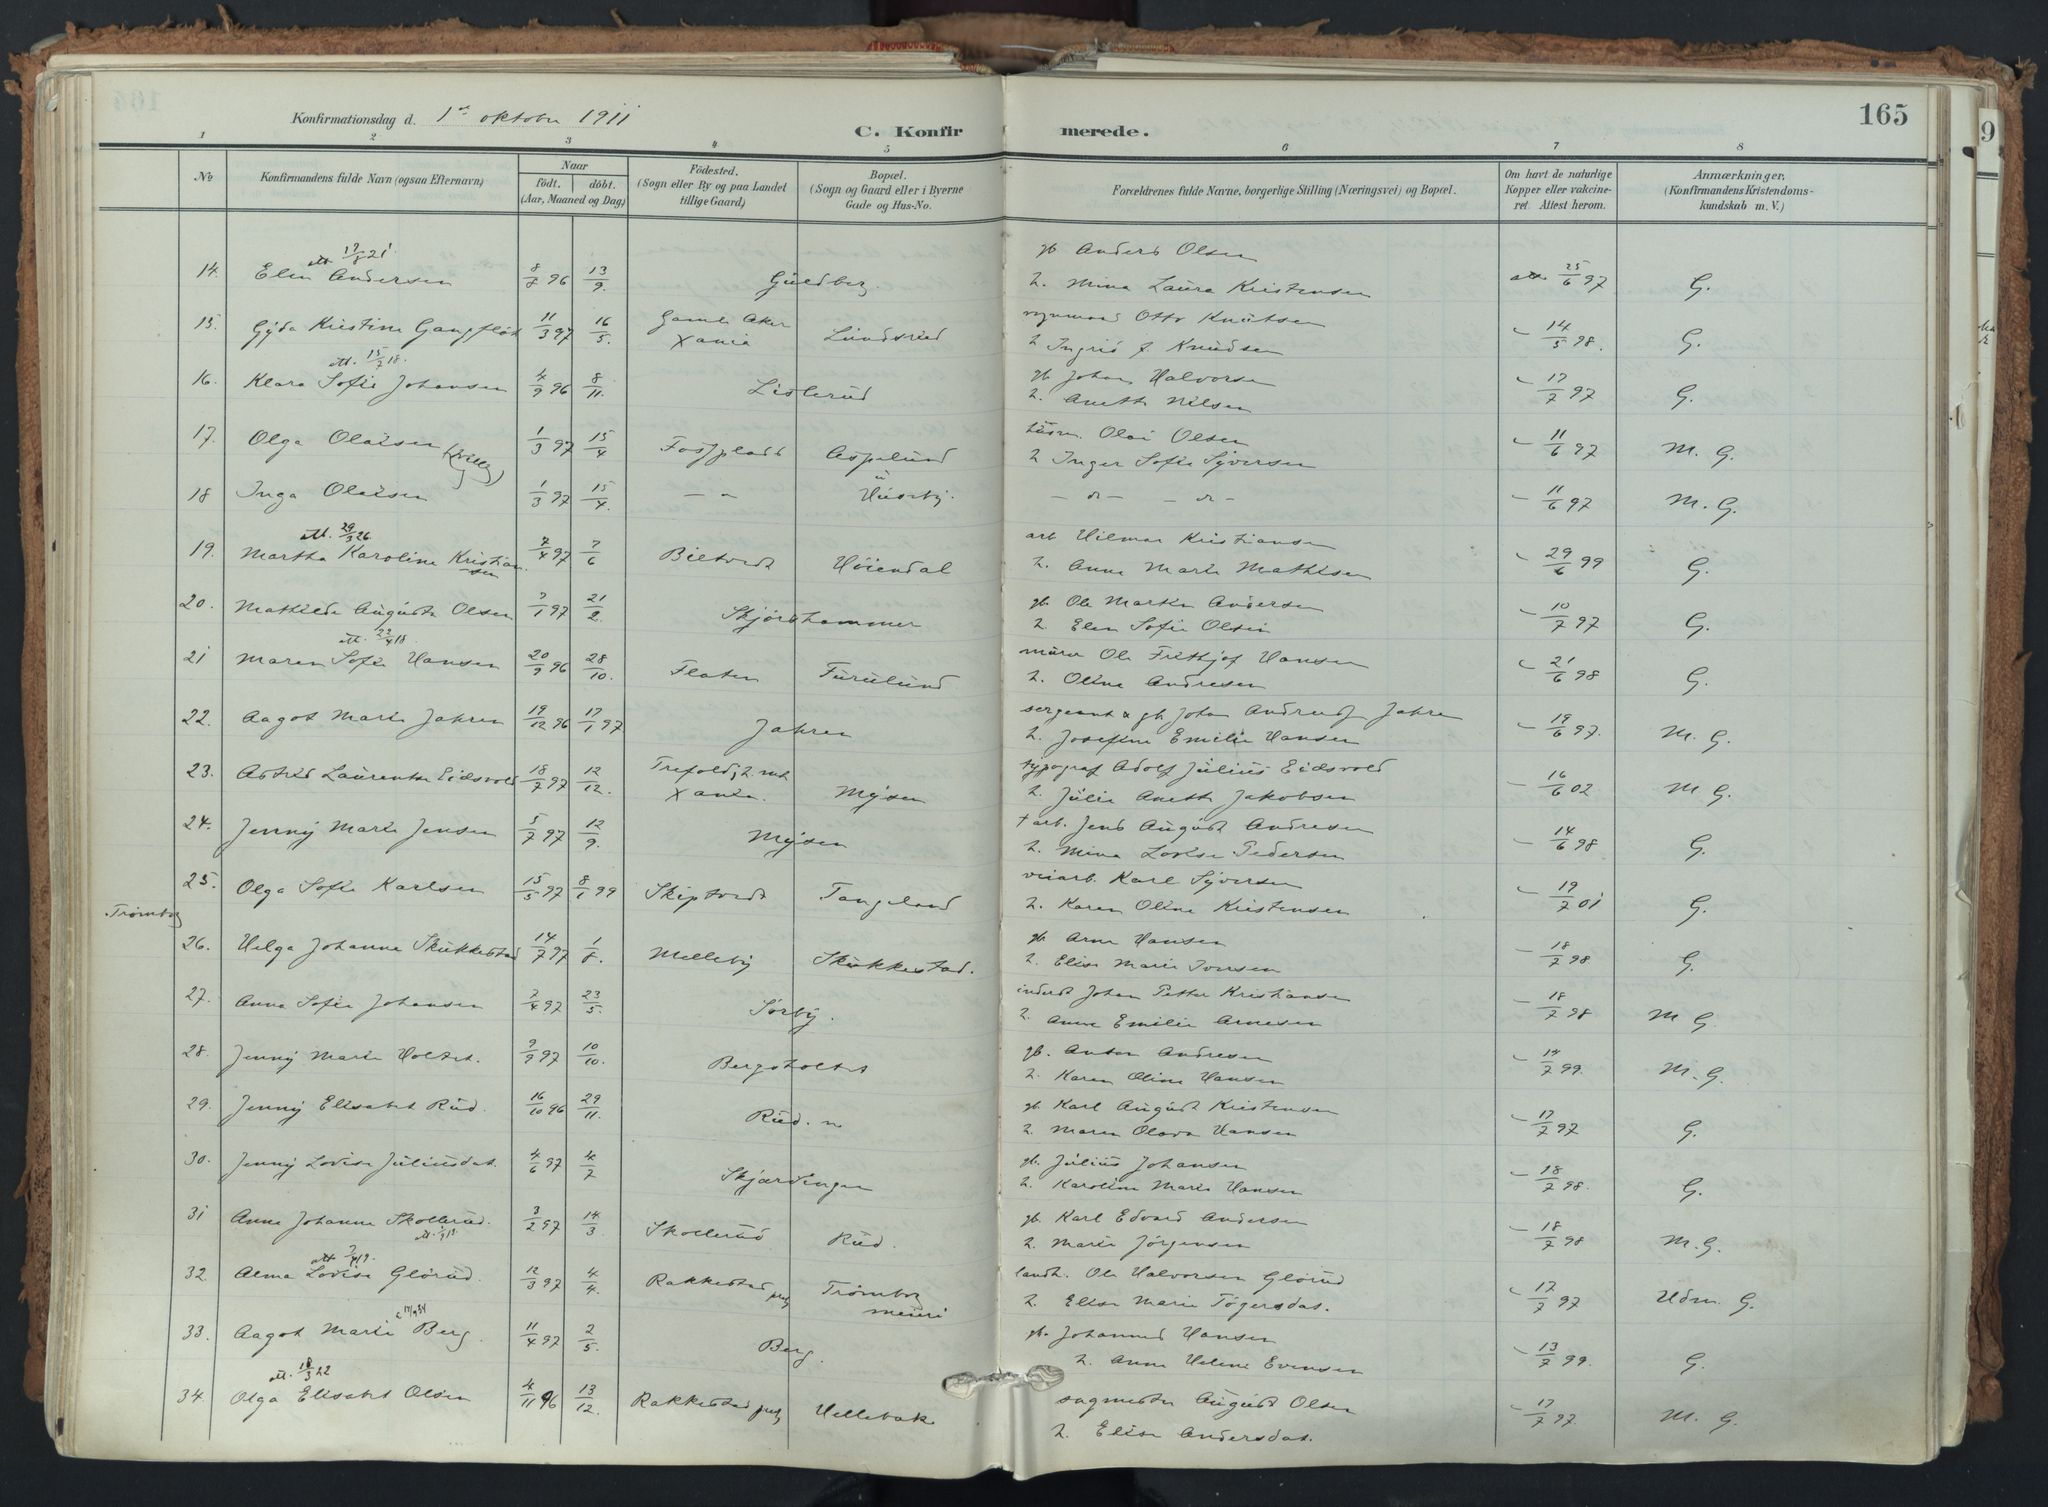 165
Konfirmationsdag d. 1st oktober 1911
C. Konfirmerede.
1 2 3 4 5 6 7 8
No Konfirmandens fulde Navn (ogsaa Efternavn) Naar födt. döbt. (Aar, Maaned og Dag) Födested. (Sogn eller By og paa Landet tillige Gaard) Bopæl. (Sogn og Gaard eller i Byerne Gade og Hus-No. Forældrenes fulde Navne, borgerlige Stilling (Næringsvei) og Bopæl. Om havt de naturlige Kopper eller vakcineret. Attest herom. Anmærkninger. (Konfirmandens Kristendomskundskab m. V.)
att 17/8 21 gb Anders Olsen
14. Elen Andersen 8/8 96 13/9 Guldberg. h. Mina Laura Kristensen att 25/6 97 G.
15. Gyda Kristine Gangfløt 11/3 97 16/5 Gamle Aker Xania Lundsrud Otto Knutsen
h Ingrid f. Knudsen - 14/5 98. G.
att. 15/7 18.
16. Klara Sofie Johansen 4/9 96 8/11 Lislerud gb Johan Halvorsen
h. Anette Nilsen - 17/7 97 G.
17. Olga Olaisen (tvilling) 1/3 97 15/4 Fossplads Aspelund husm. Olai Olsen
h Inger Sofie Syversen - 11/6 97 M. G.
18 Inga Olaisen 1/3 97 15/4 - " Huseby. - dr - - dr - - 11/6 97 M. G.
att. 29/3 26
19. Martha Karoline Kristiansen 7/4 97 7/6 Biltvedt Höiendal arb Hilmar Kristiansen
h. Anne Marie Mathisen - 29/6 99 G.
20. Mathilde Augusta Olsen 7/1 97 21/2 Skjørshammer gb. Ole Martin Andersen
h. Elen Sofie Olsen - 10/7 97 G.
att. 22/4 18
21 Maren Sofie Hansen 20/9 96 28/10. Flaten Furulund murer Ole Frithjof Hansen
h. Oline Andresen - 21/6 98 G.
22. Aagot Marie Jahren 19/12 96 17/1 97 Jahren sergeant & gb. Johan Jahren
h. Josefine Emilie Hansen - 19/6 97. M. G.
23. Astrid Laurentse Eidsvold 18/7 97 12/12. Xania. Mysen typograf Adolf Julius Eidsvold
h. Julie Anette Jakobsen - 16/6 02 M G.
24. Jenny Marie Jensen 5/7 97 12/9. Mysen † arb. Jens August Andresen
h. Mina Lovise Pedersen - 14/6 98 G.
25. Olga Sofie Karlsen 15/5 97 8/1 99 Skiptvedt Tangeland veiarb. Karl Syversen
h. Karen Oline Kristensen - 19/7 01 G.
Trømborg
26. Helga Johanne Skukkestad 14/7 97 1/8. Melleby Skukkestad. gb. Arne Hansen
h. Elise Marie Iversen - 18/7 98 G.
27. Anna Sofie Johansen 7/4 97 23/5. Sørby. inderst Johan Petter Kristiansen
h. Anne Emilie Arnesen - 18/7 98 M G.
28. Jenny Marie Holtet. 9/9 97 10/10. Bergsholtet gb. Anton Andresen
h. Karen Oline Hansen - 14/7 99. M. G.
29. Jenny Elisabet Rud. 16/10 96 29/11. Rud. n gb. Karl August Kristensen
h. Maren Olava Hansen - 17/7 97 G.
30. Jenny Lovise Juliusdat. 4/6 97 4/7 Skjærdingen gb. Julius Johansen
h. Karoline Marie Hansen - 18/7 98. G.
31 Anne Johanne Skollerud. 3/2 97 14/3. Skollerud Rud. gb. Karl Edvard Andersen
h. Marie Jörgensen - 18/7 98 M. G.
32. Alma Lovise Glørud. 12/3 97 4/4. Rakkestad Trømborg meieri landh. Ole Halvorsen Glörud
h. Elise Marie Togersdat. - 17/7 97 Udm. G.
33. Aagot Marie Berg. 11/4 97 2/5. Berg. gb. Johannes Hansen
h. Anne Helene Evensen - 13/7 99. G.
att. 18/3 22
34. Olga Elisabet Olsen 4/11 96 13/12. Rakkestad Hellebak sagmester August Olsen
h. Elise Andersdat. - 17/7 97. M. G.